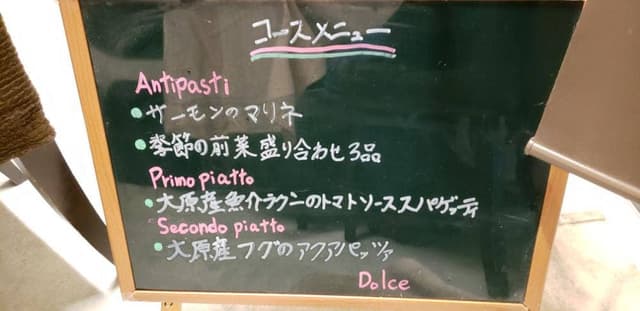 コースメニュー
Antipasti
サーモンのマリネ
季節の前菜盛り合わせ3品
Primo piatto
大原産魚介ラグーのトマトソーススパゲッティ
Secondo piatto
大原産フグのアクアパッツァ
Dolce